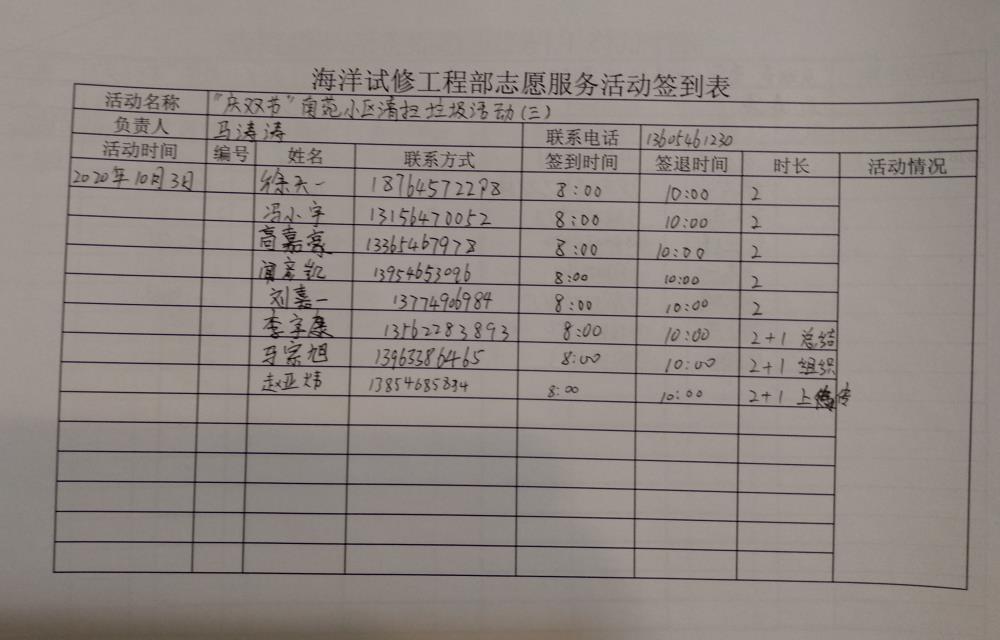 海洋试修工程部志愿服务活动签到表
活动名称 "庆双节"南苑小区清扫垃圾活动(三)
负责人 马涛涛 联系电话 13605461230
活动时间 编号 姓名 联系方式 签到时间 签退时间 时长 活动情况
2020年10月3日 徐天一 18764572298 8:00 10:00 2
冯小宇 13156470052 8:00 10:00 2
高嘉豪 13365467978 8:00 10:00 2
闻彦凯 13954653096 8:00 10:00 2
刘嘉一 13774906984 8:00 10:00 2
李宇康 13562283893 8:00 10:00 2+1 总结
马宗旭 13963386465 8:00 10:00 2+1 组织
赵亚炜 13854685834 8:00 10:00 2+1 上传